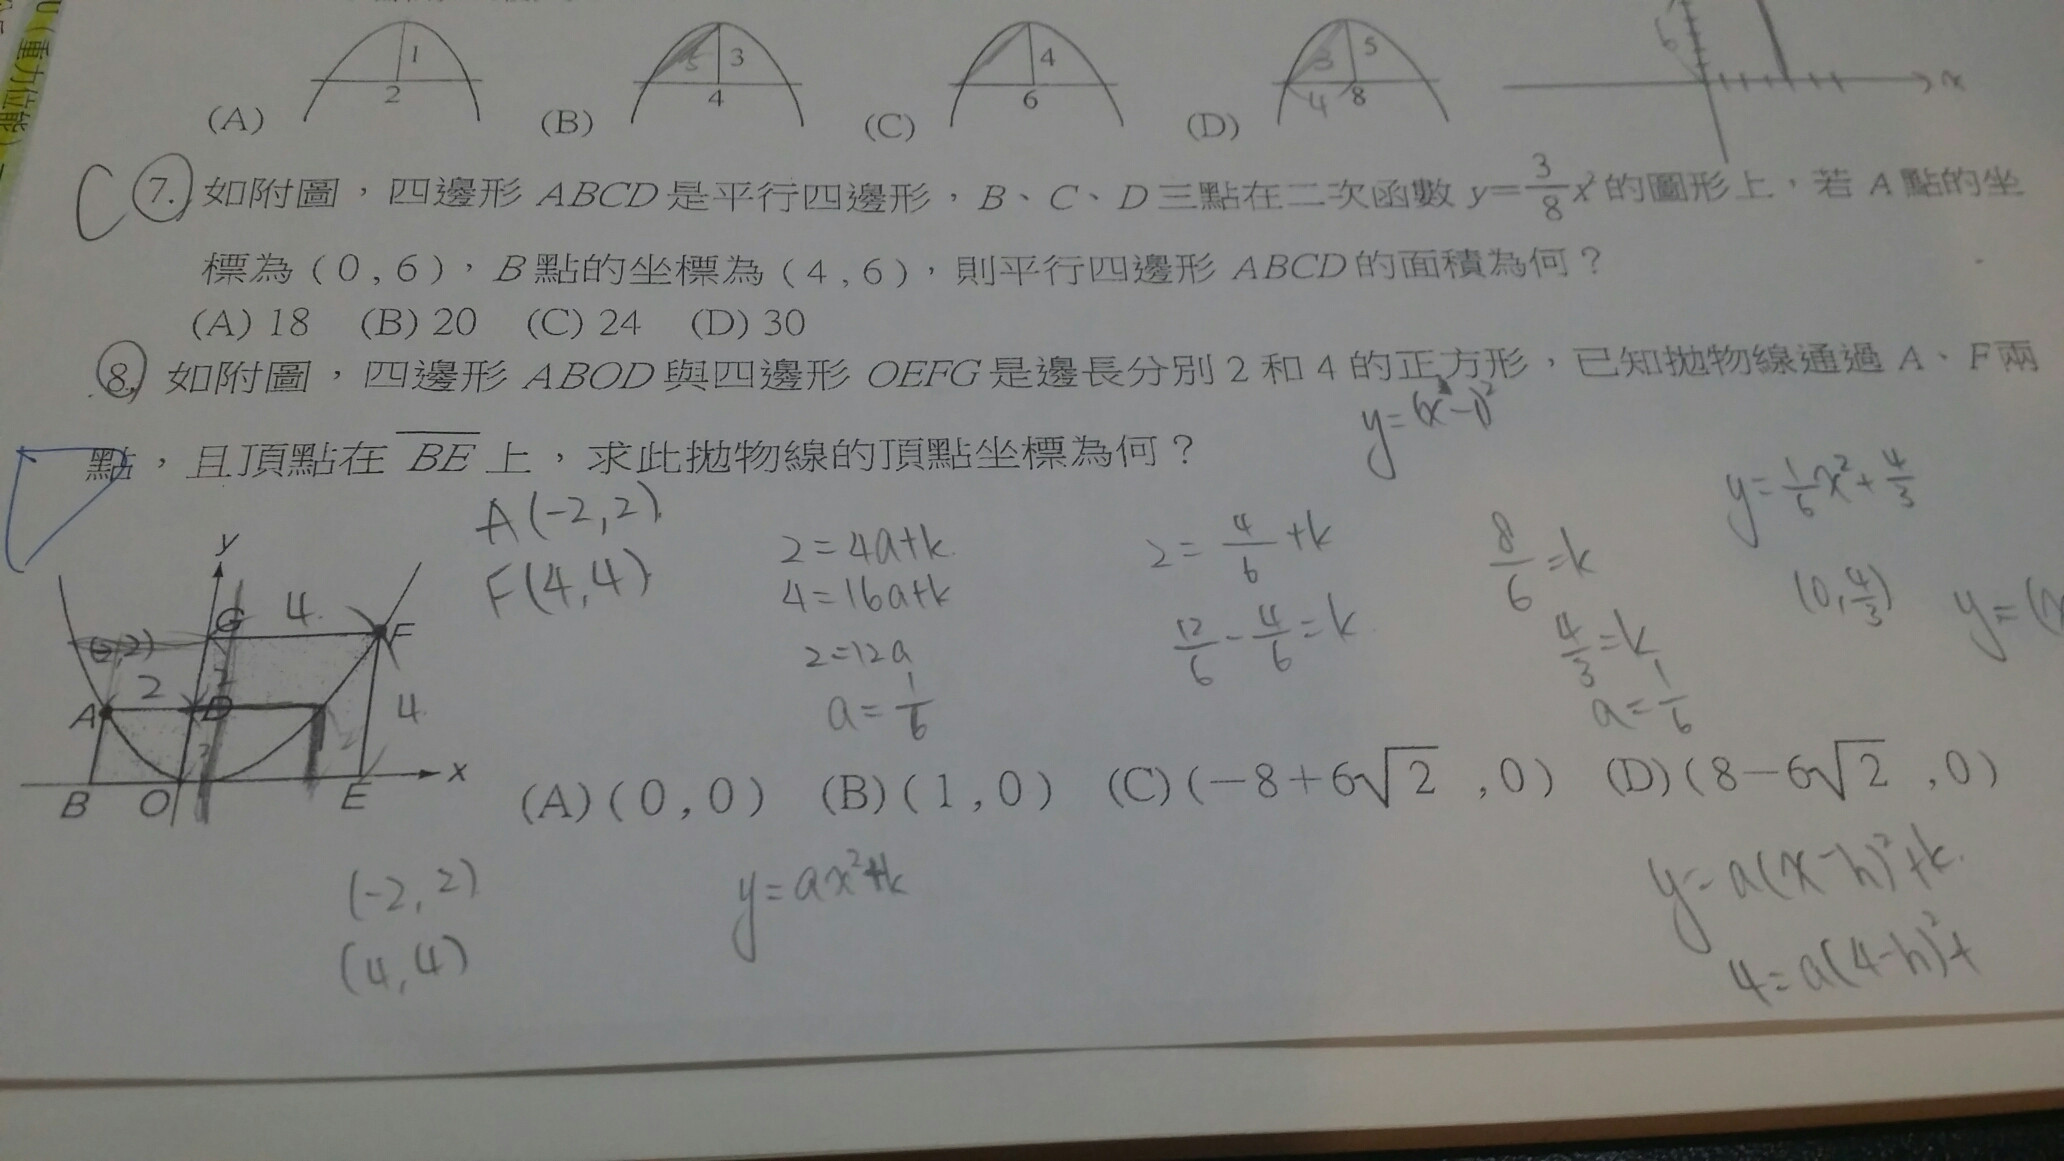 (重力位能)
1
2
3
4
5
4
6
5
3
4
8
x
(A) (B) (C) (D)
C 7. 如附圖，四邊形 ABCD 是平行四邊形，B、C、D 三點在二次函數 y=3/8x²的圖形上，若 A 點的坐
標為（0,6），B 點的坐標為（4,6），則平行四邊形 ABCD 的面積為何？
(A) 18 (B) 20 (C) 24 (D) 30
8. 如附圖，四邊形 ABOD 與四邊形 OEFG 是邊長分別 2 和 4 的正方形，已知拋物線通過 A、F 兩
點，且頂點在 BE 上，求此拋物線的頂點坐標為何？
y=(x-1)²
A(-2,2)
F(4,4)
2=4a+k
4=16a+k
2=12a
a=1/6
2=4/6+k
12/6-4/6=k
8/6=k
4/3=k
a=1/6
y=1/6x²+4/3
(0,4/3)
y=(x
y
G
4
F
(-2,2)
2
2
A
D
4
2
2
x
B
O
E
(A)(0,0) (B)(1,0) (C)(−8+6√2,0) (D)(8−6√2,0)
(-2,2)
(4,4)
y=ax²+k
y=a(x-h)²+k
4=a(4-h)²+